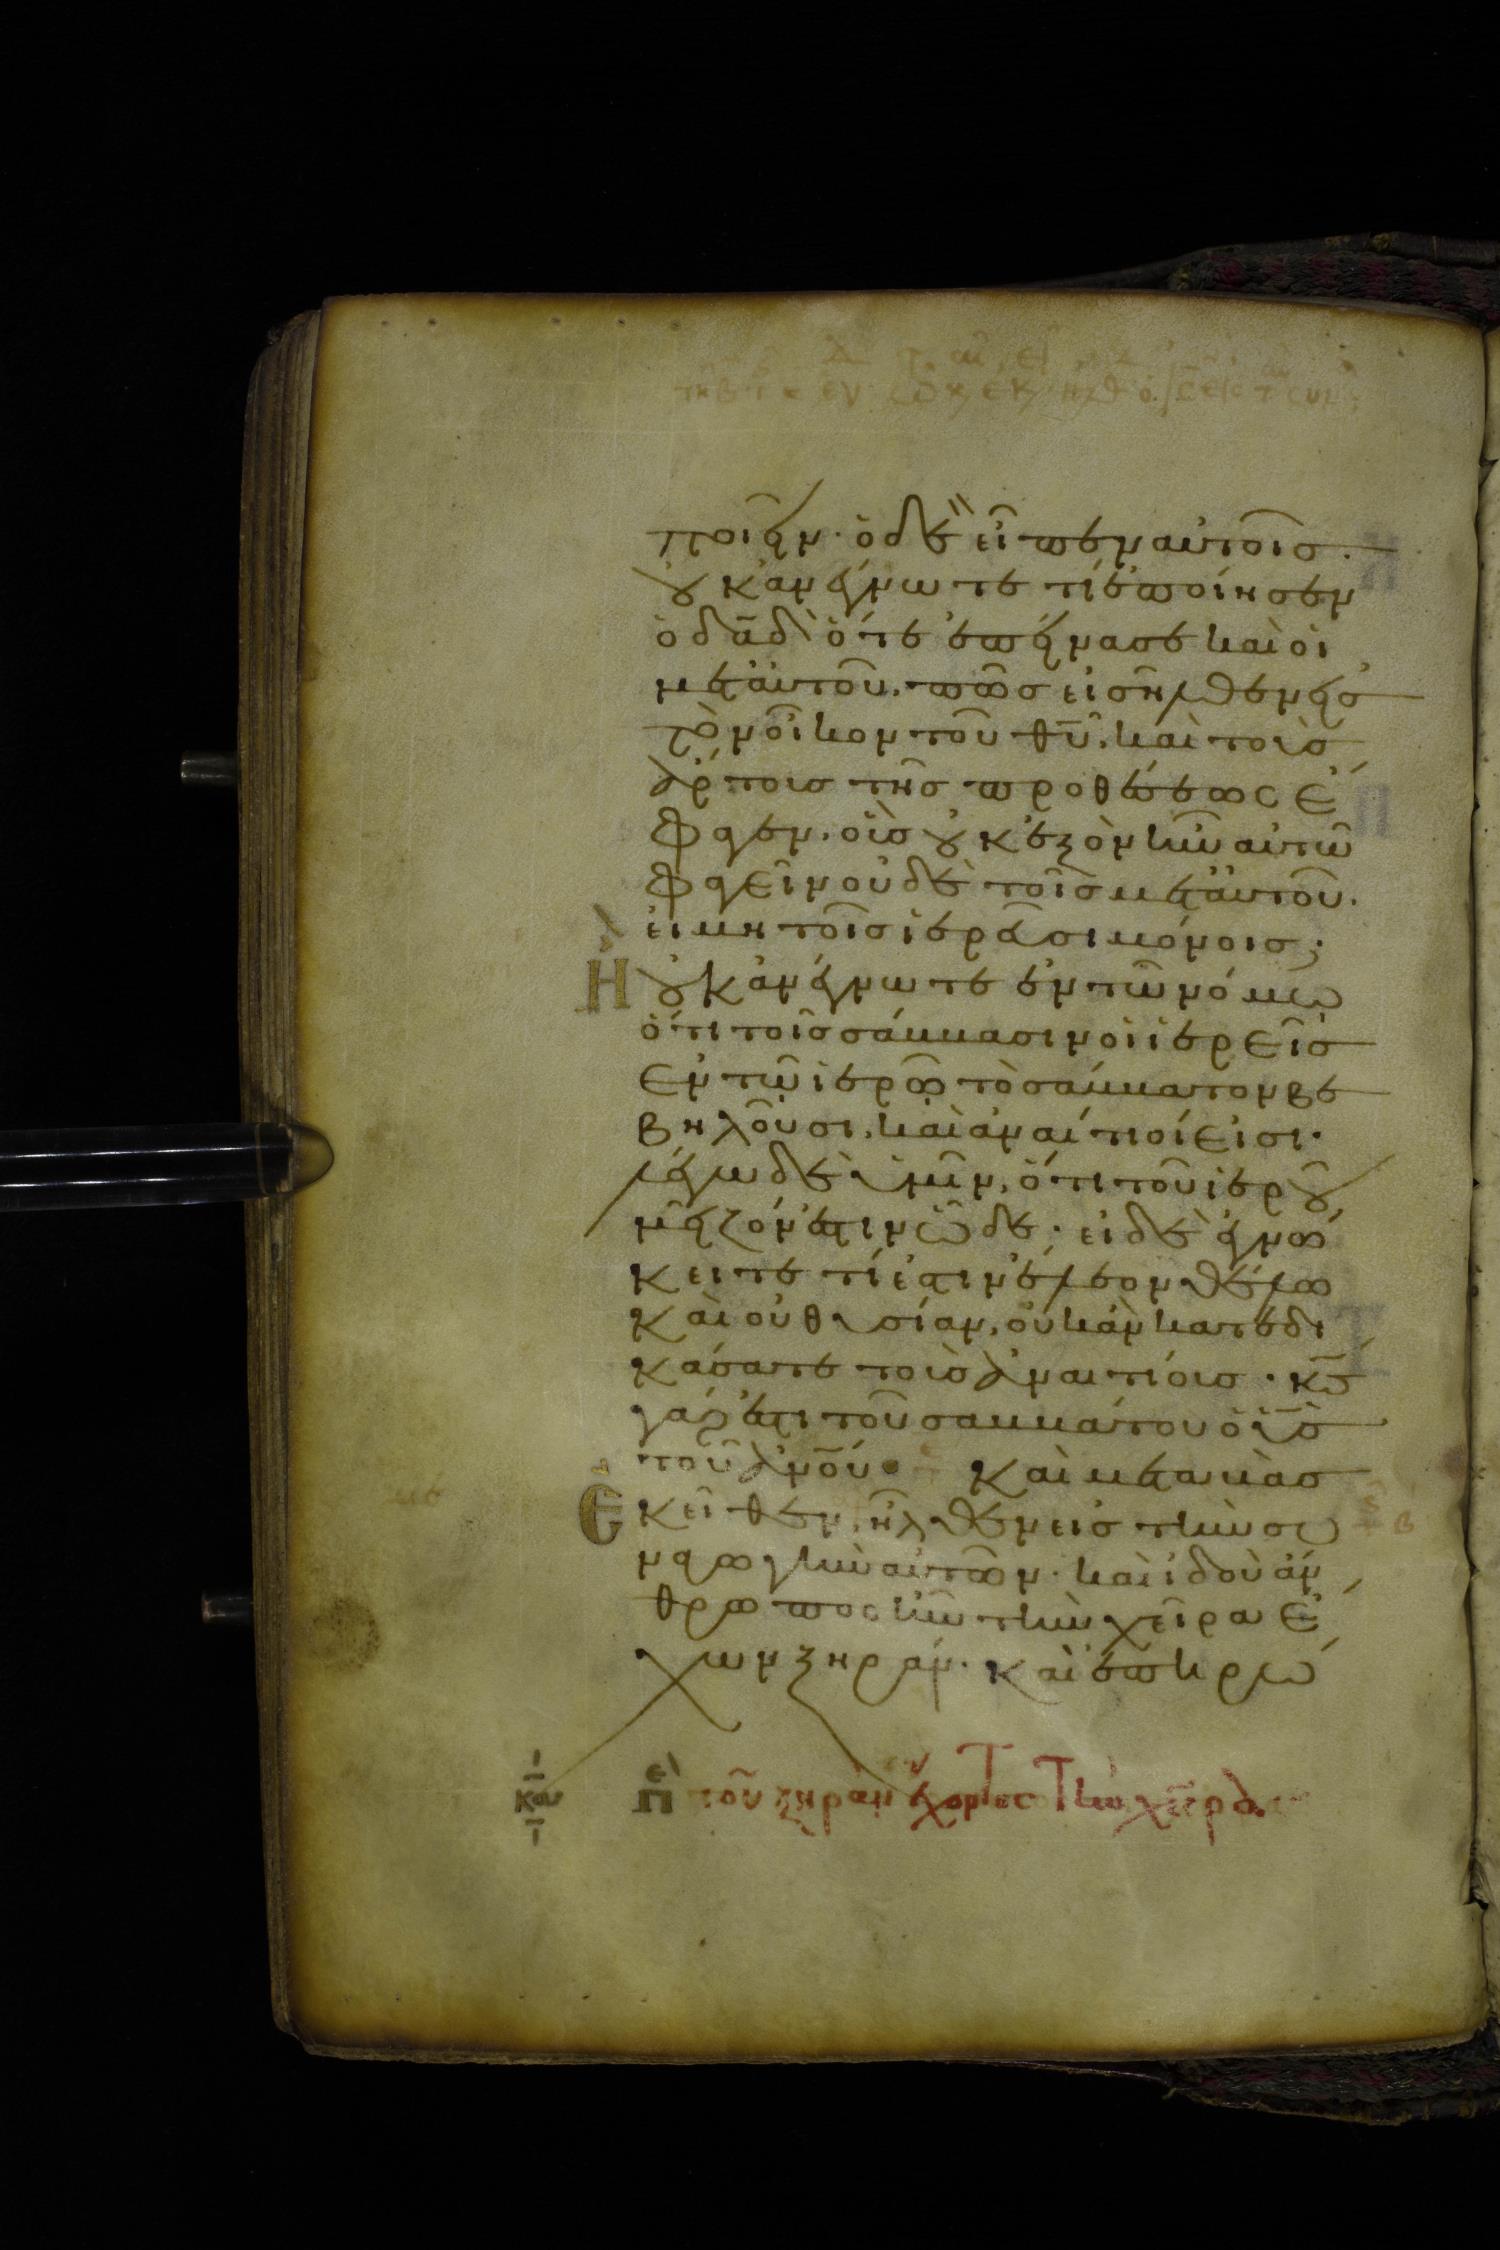 ποιεῖν· ὁ δὲ εἶπεν αὐτοῖς·
οὐκ ἀνέγνωτε τί ἐποίησεν
ὁ δᾱδ ὅτε ἐπείνασε καὶ οἱ
μετ αὐτοῦ, πῶς εἰσῆλθεν εἰς
τὸν οἶκον τοῦ θῡ, καὶ τοὺς
ἄρτους τῆς προθέσεως ἔ
φαγεν, οὓς οὐκ ἐξὸν ἦν αὐτῶ
φαγεῖν οὐδὲ τοῖς μετ αὐτοῦ.
εἰ μη τοῖς ἱερεῦσι μόνοις;
Ἢ οὐκ ἀνέγνωτε ἐν τῶ νόμω
ὅτι τοῖς σάββασιν οἱ ἱερεῖς
ἐν τῶ ἱερῶ τὸ σάββατον βε
βηλοῦσι, καὶ ἀναίτιοί εἰσι·
λέγω δὲ ὑμῖν, ὅτι τοῦ ἱεροῦ
μεῖζόν ἐστιν ὧδε· εἰ δὲ ἐγνώ
κειτε τί ἐστιν ἔλεον θέλω
καὶ οὐ θυσίαν, οὐκ ἂν κατεδι
κάσατε τοὺς ἀναιτίους· κς̄
γάρ ἐστι τοῦ σαββάτου ὁ υς̄
τοῦ ἀνο̄υ· Καὶ μεταβὰς
ἐκεῖθεν, ἦλθεν εἰς τὴν συ
ναγωγὴν αὐτῶν· καὶ ἰδοὺ ἄν
θρωπος ἦν τὴν χεῖρα ἔ
χων ξηράν· καὶ ἐπηρώ
Περὶ τοῦ ξηρὰν ἔχοντος τὴν χεῖρα.